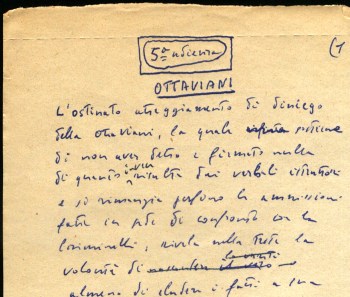 5ª udienza
(1
OTTAVIANI
L'ostinato atteggiamento di diniego
della Ottaviani, la quale sostiene
di non aver detto e firmato nulla
di quanto risulta dai verbali istruttori
e si rimangia perfino le ammissioni
fatte in sede di confronto con la
rivela nella teste la
volontà di
almeno di eludere i fatti a sua